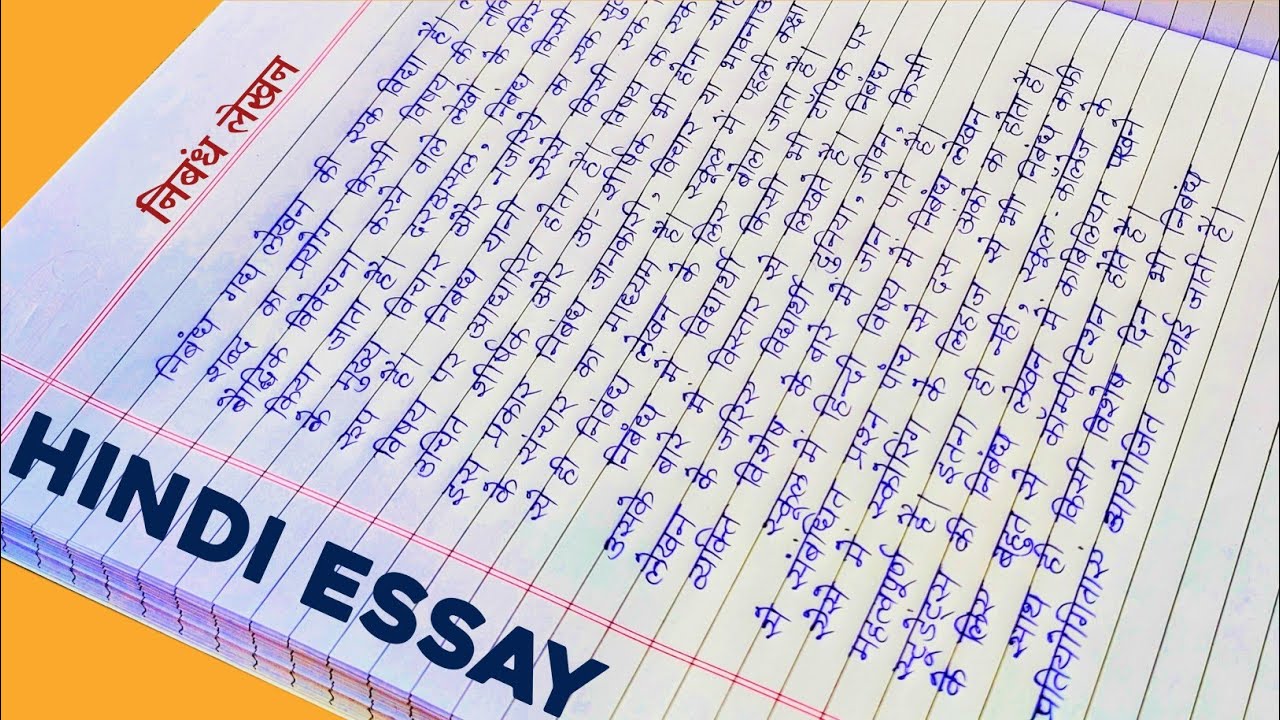 निबंध लेखन
निबंध गद्य लेखन की एक विद्या है।
शब्द का प्रयोग किसी विषय की
बौद्धिक विवेचना करने वाले लेखों के लिए
किया जाता है। दरअसल, निबंध किसी
के मुख्य विचार और नजरिये का एक
रूप है। निबंध यानी ऐसे किसी एक
विषय पर आधारित होता है। विषय का एक
उचित शीर्षक और उप-शीर्षक भी होना
इस प्रकार निबंध जानकारी, विचार या
के संचार का माध्यम है। स्कूल में पहली कक्षा
से ही निबंध लेखन के लिए बोला जाता है।
निबंध में विद्यार्थी किसी भी टॉपिक पर
उसके बारे में विस्तार से लिखते हैं। निबंध
लेखन के जरिए विद्यार्थी दुनिया, जीवन, किसी
व्यक्ति विशेष के बारे में जान पाते हैं।
स्कूल में हिन्दी विषय में निबंध लेखन
से संबंधित प्रश्न पांच से दस अंको का होता है।
ऐसे में स्कोरिंग के लिहाज से भी निबंध काफी
महत्वपूर्ण है। इतना ही नहीं, स्कूल-कॉलेज के
स्टूडेंट्स की निबंध लेखन में काबिलियत परखने
के लिए बहुत से कॉम्पीटिशन होते हैं।
साथ ही किसी विशेष दिन भी निबंध
प्रतियोगिताएं आयोजित करवाई जाती है।
HINDI ESSAY